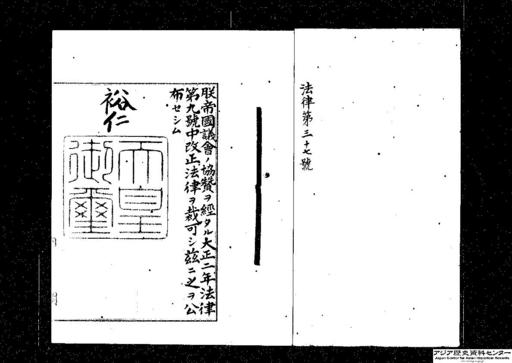 法律第三十七號
朕帝國議會ノ協贊ヲ經タル大正二年法律
第九號中改正法律ヲ裁可シ茲ニ之ヲ公
布セシム
裕仁
天皇
御璽
アジア歴史資料センター
Japan Center for Asian Historical Records